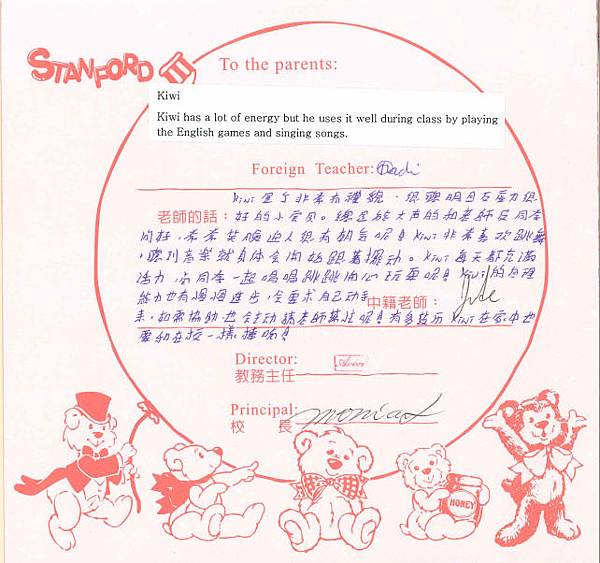 STANFORD
To the parents:
Kiwi
Kiwi has a lot of energy but he uses it well during class by playing
the English games and singing songs.
Foreign Teacher:
Kiwi 是个非常有禮貌、很聰明且反應力很
老師的話：好的小寶貝。總是能大声的和老師及同學
問好，常常笑臉迎人很有朝氣呢！Kiwi 非常喜欢跳舞
，聽到音樂就身体会開始跟著擺动。Kiwi 每天都充滿
活力，与同學一起唱唱跳跳開心玩耍呢！Kiwi 的自理
能力也有慢慢進步，会要求自己动手 中籍老師：
來，如需協助也会主动請老師幫忙呢！ Kiwi 在家中也
要和在校一樣棒喲！
Director:
教務主任
Principal:
校 長
HONEY